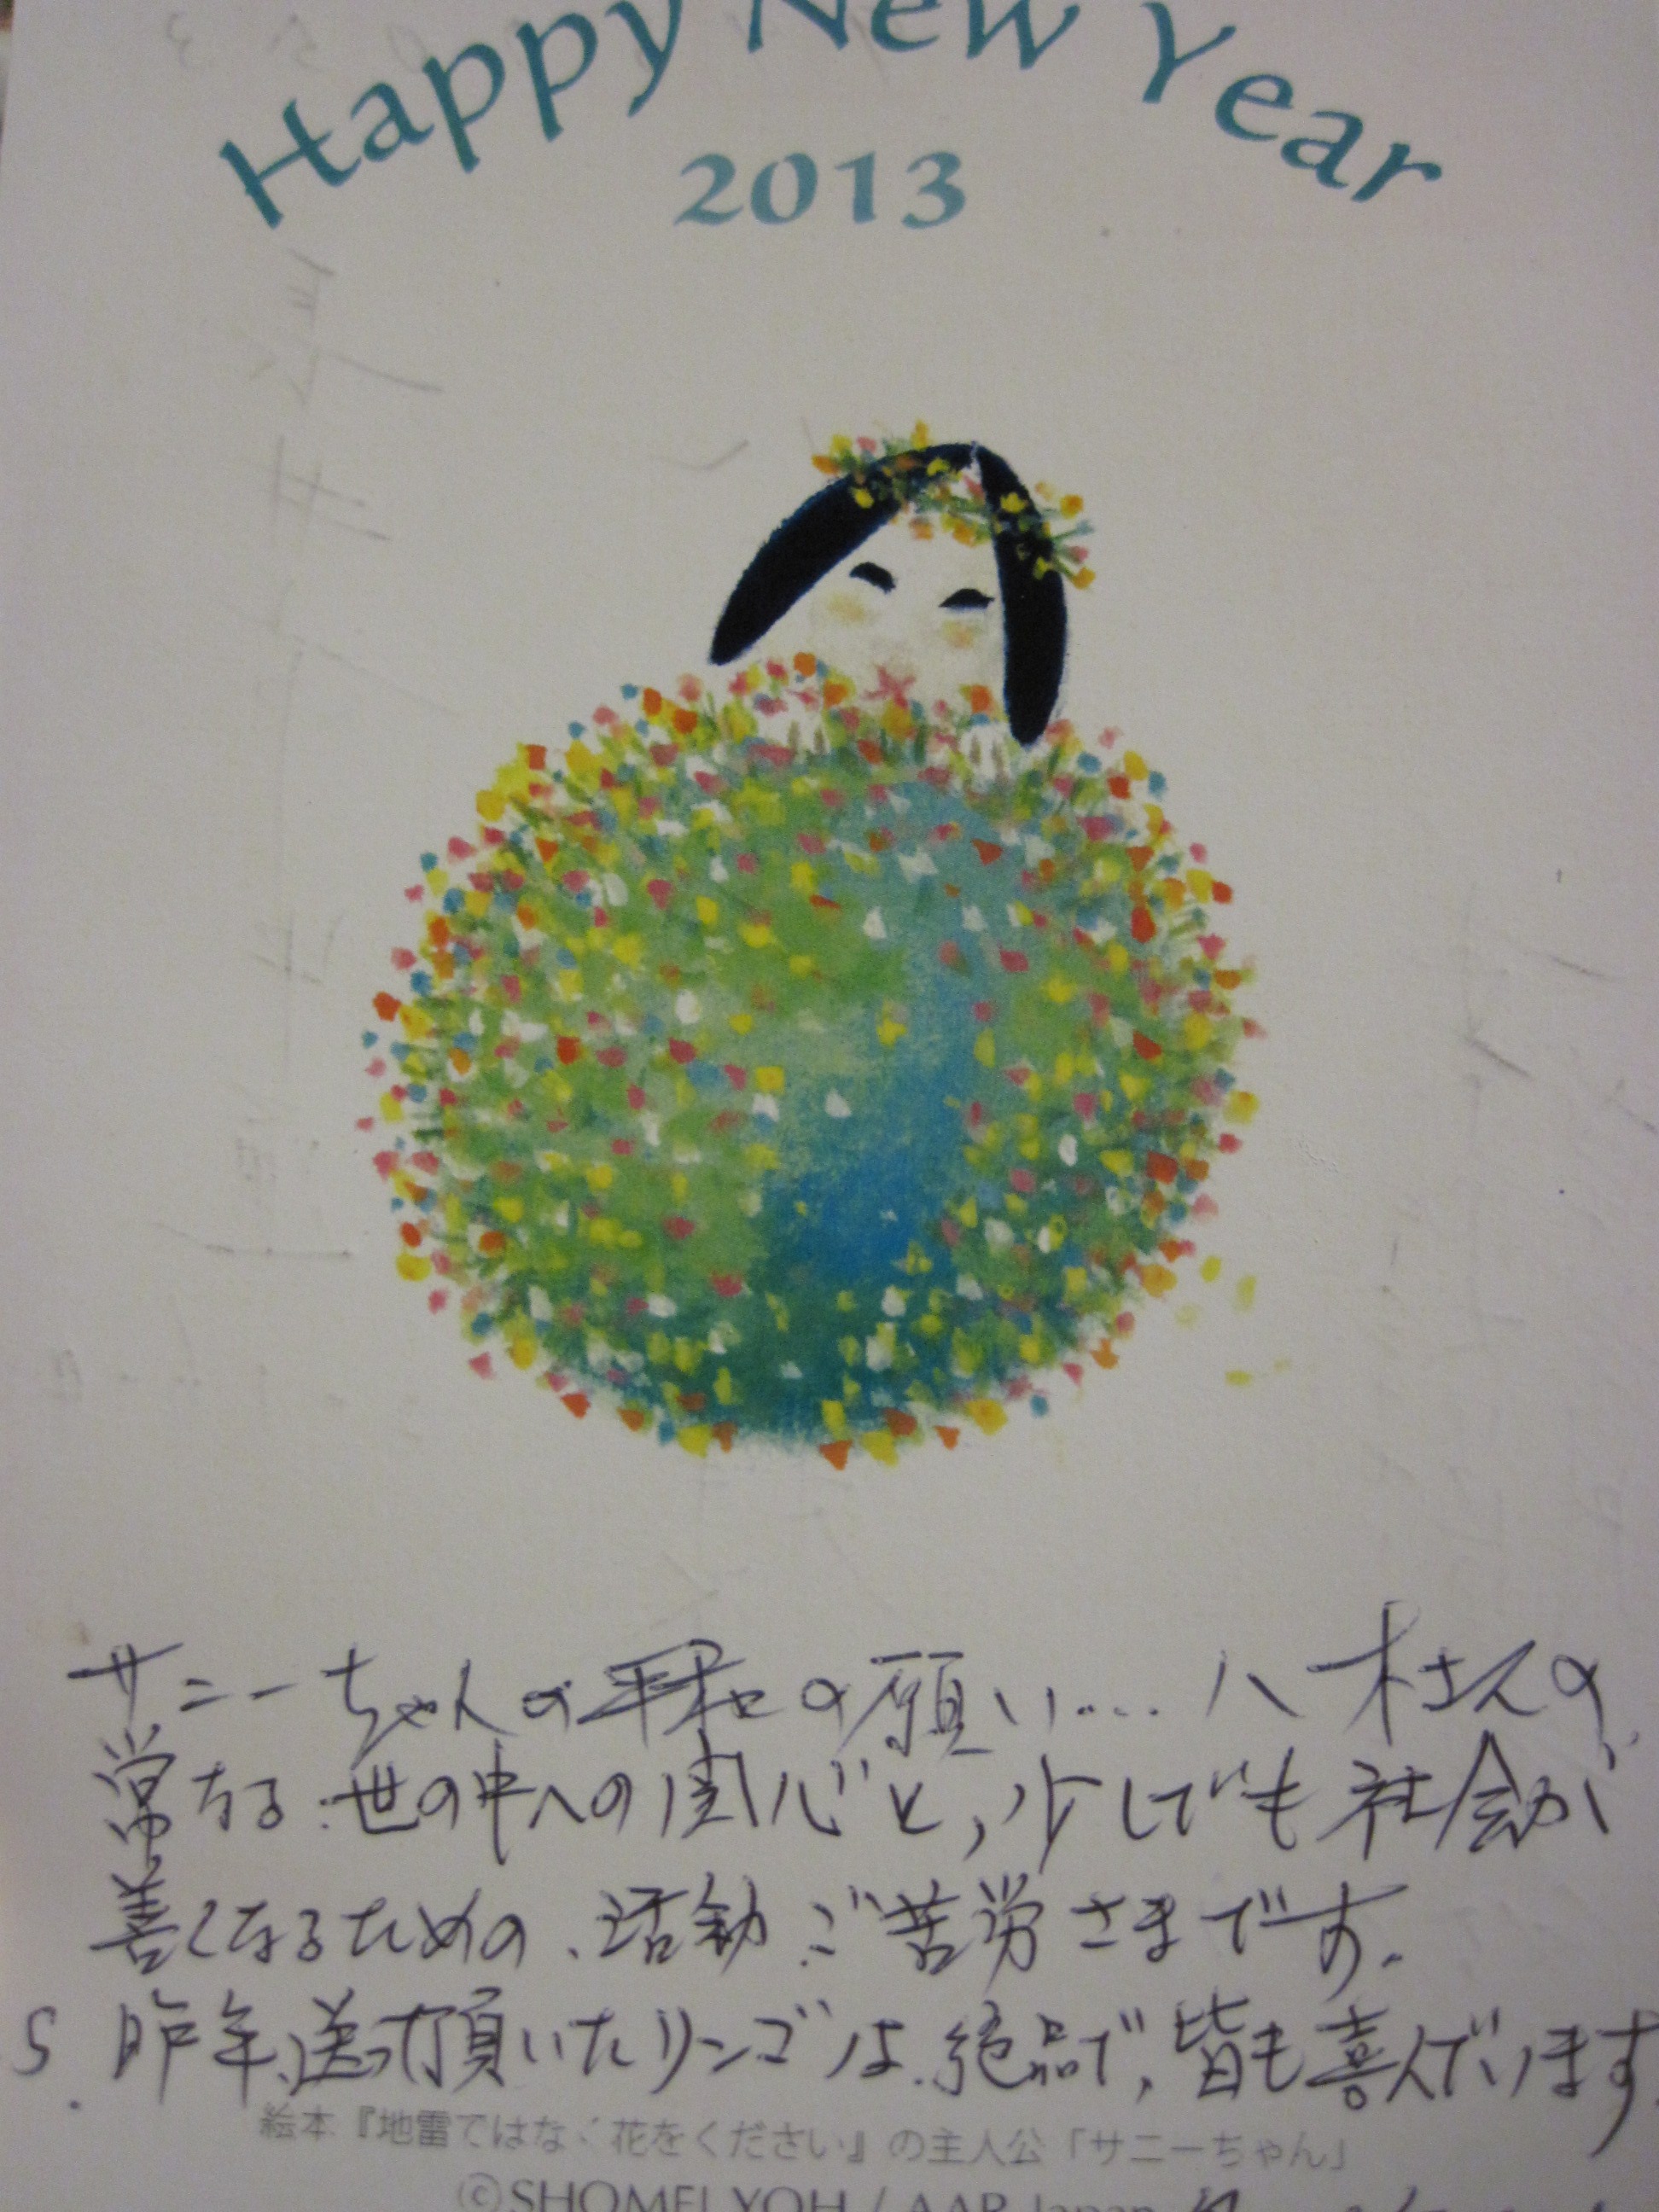 Happy New Year
2013
サニーちゃんの平和の願い.... 八木さんの
常なる世の中への関心と、少しでも社会が
善くなるための、活動ご苦労さまです。
S. 昨年送って頂いたリンゴは、絶品で、皆も喜んでいます
絵本『地雷ではなく花をください』の主人公「サニーちゃん」
©SHOMEI YOH / AAR Japan